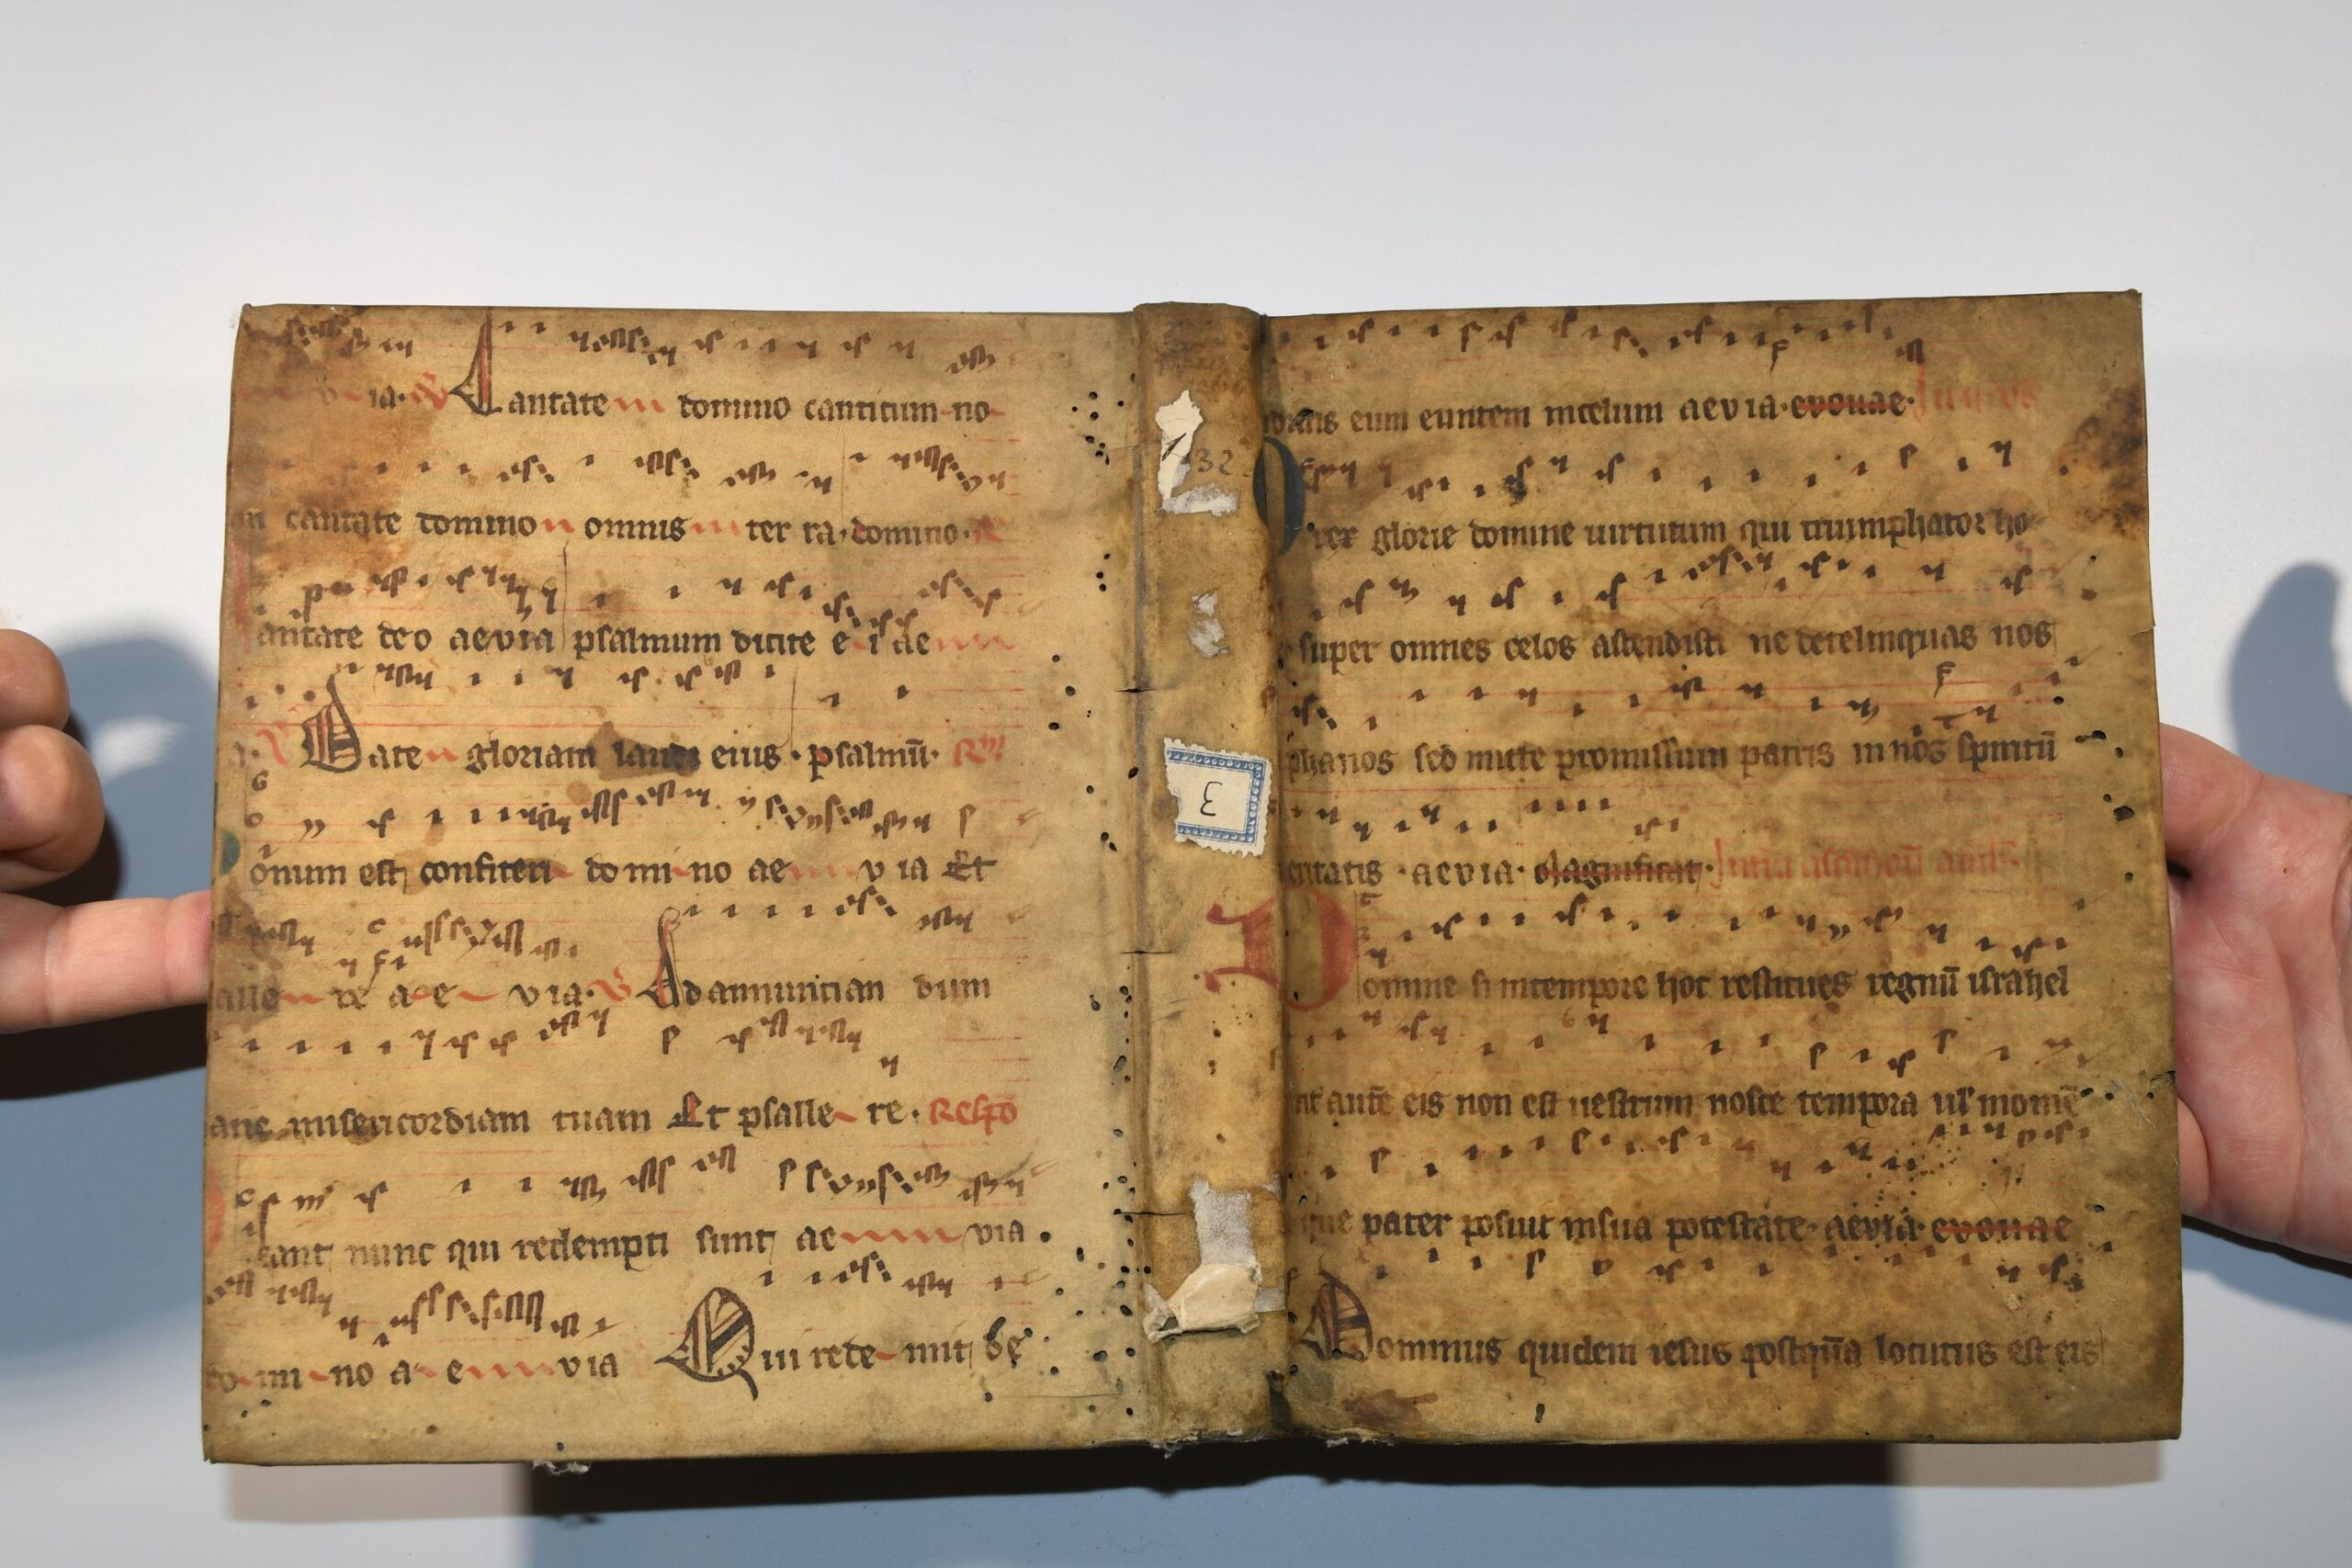 ia. Cantate domino canticum no
cantate domino omnis ter ra. domino.
antate deo aevia psalmum dicite e i ae
Date gloriam laudi eius. psalmū.
onum est confiteri do mi no ae v ia Et
re a e v ia. Ad annuntian dum
ane misericordiam tuam Et psalle re. Respo
cant nunc qui redempti sunt ae via.
do mi no a e via Qui rede mit
32
3
eum euntem incelum aevia. evouae.
rex glorie domine uirtutum qui triumphator ho
super omnes celos ascendisti ne derelinquas nos
phanos sed mitte promissum patris in nos spiritū
eritatis. aevia. Magnificat.
Domine si intempore hoc restitues regnū israhel
autē eis non est uestrum nosce tempora ul momē
que pater posuit insua potestate. aevia. evouae
Dominus quidem iesus postq̄a locutus est eis